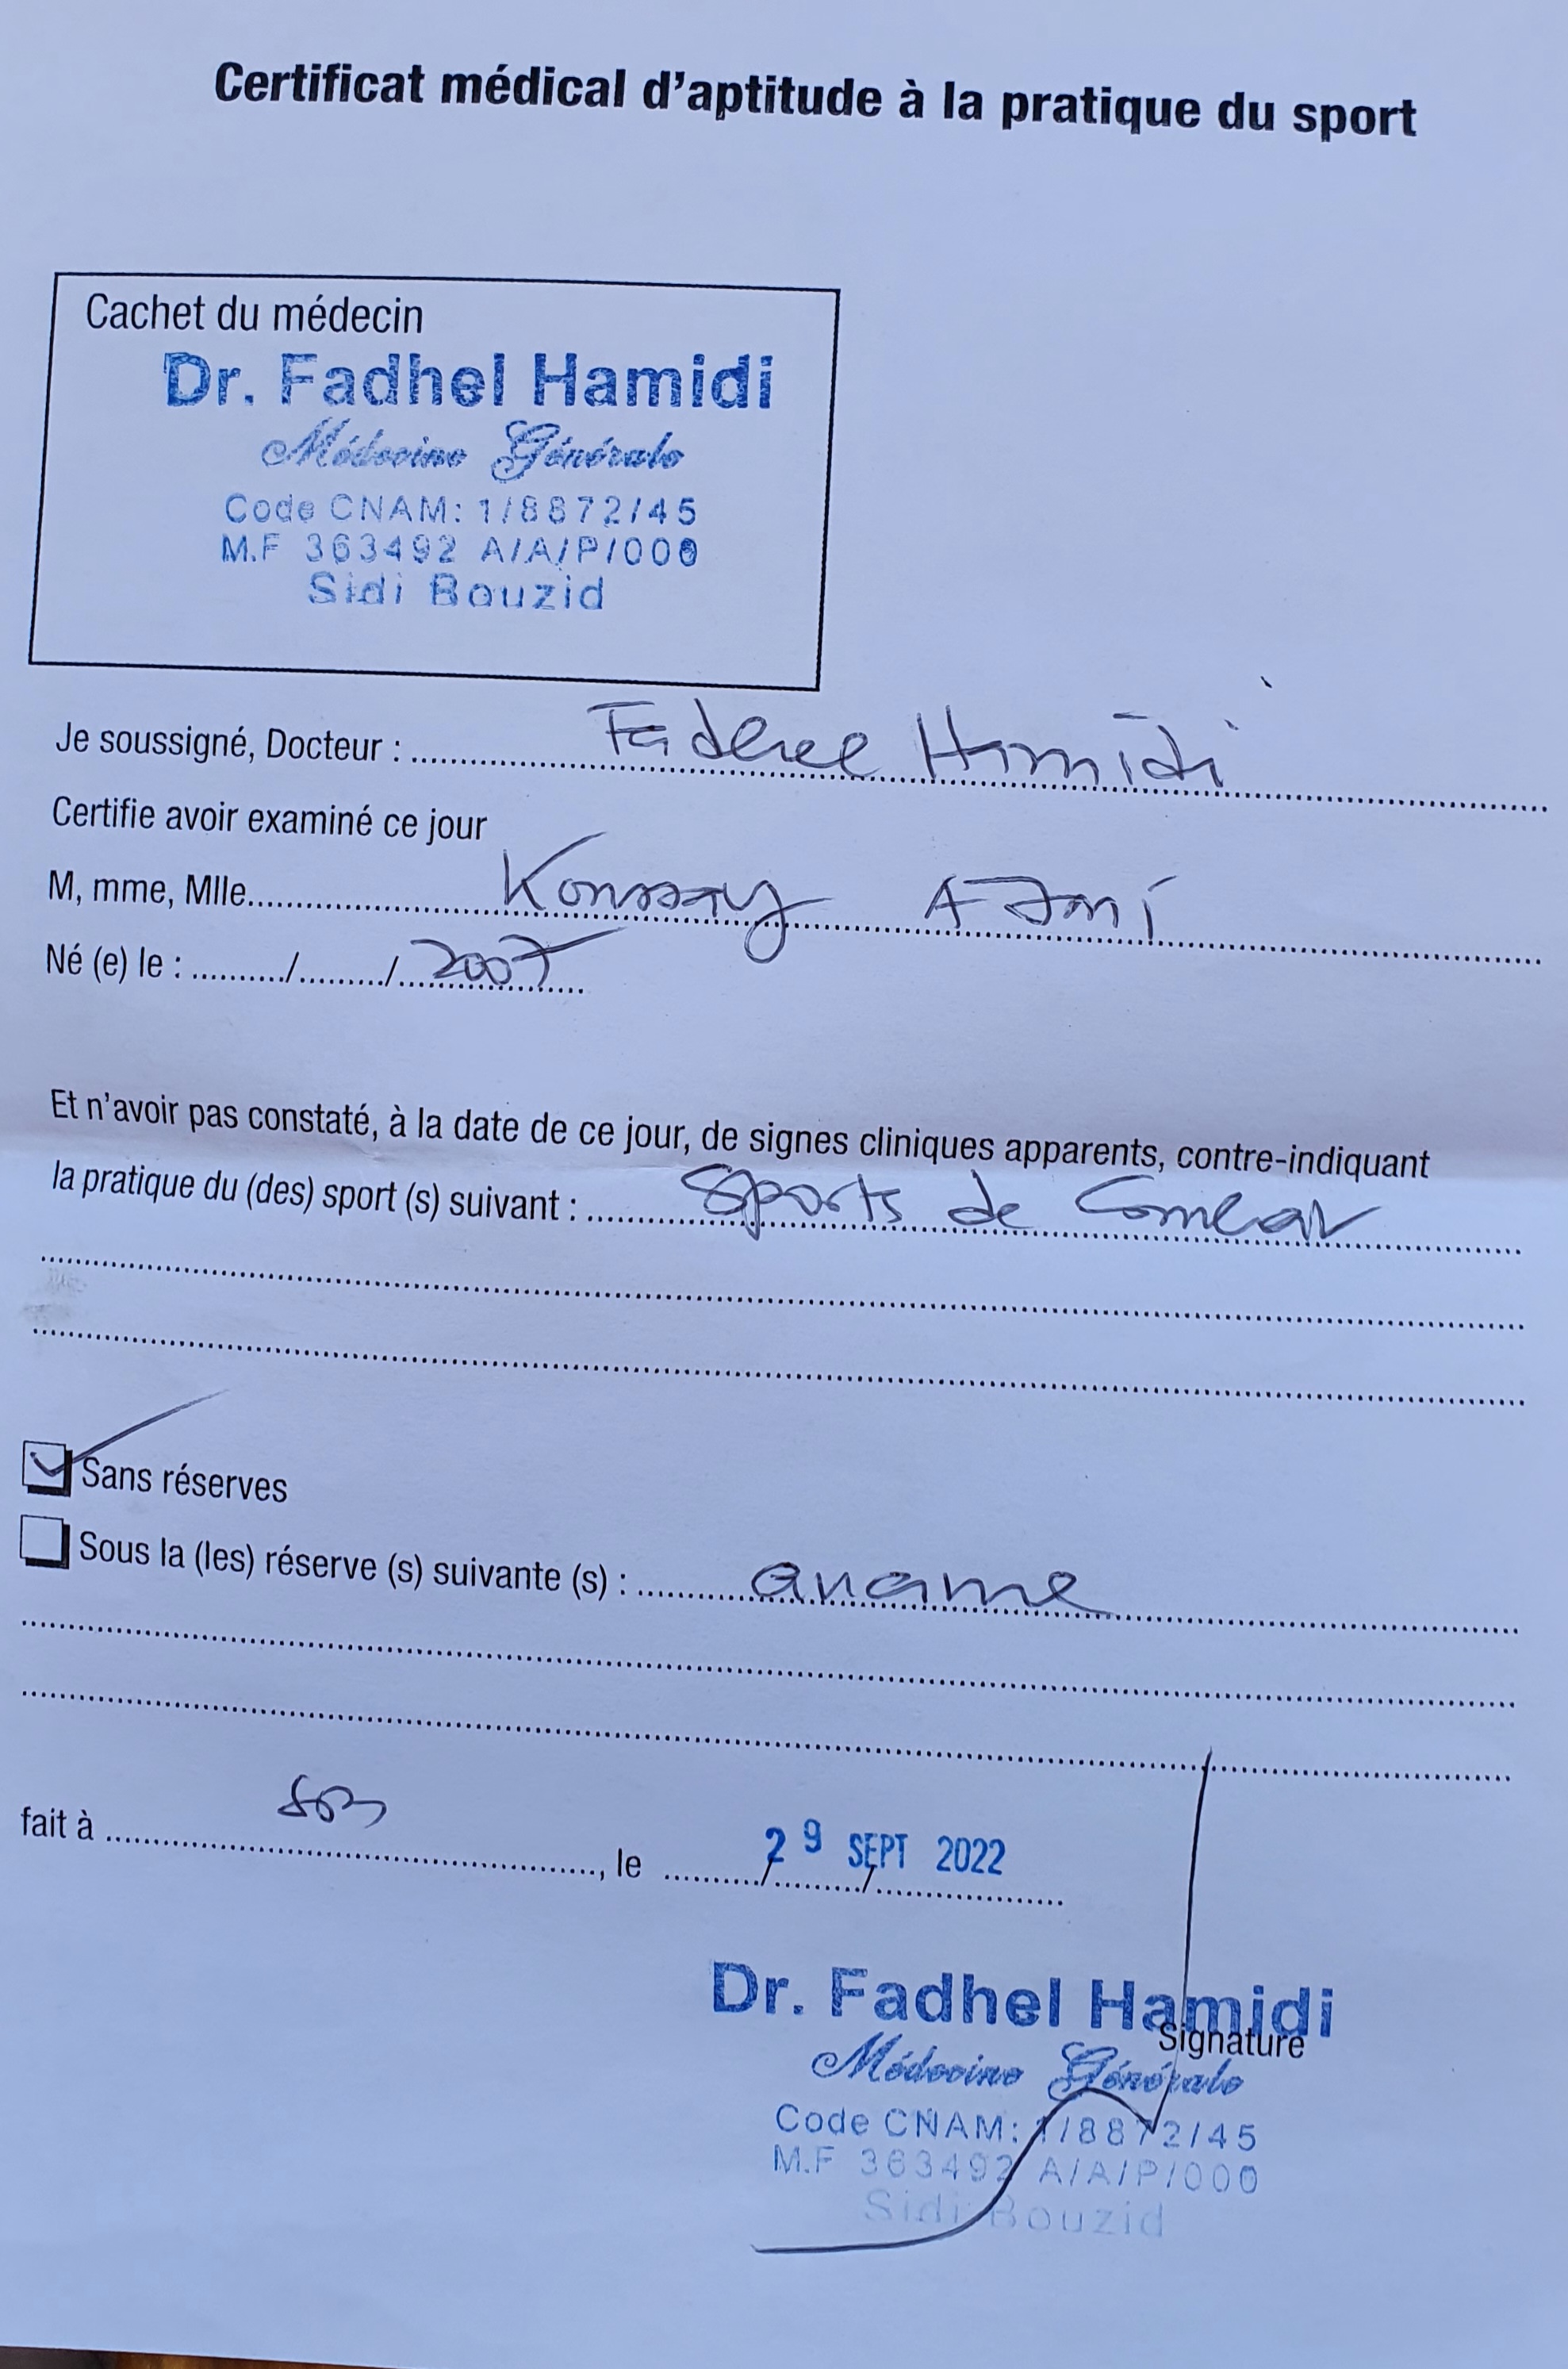 Certificat médical d'aptitude à la pratique du sport
Cachet du médecin
Dr. Fadhel Hamidi
Médecine Générale
Code CNAM: 1/8872/45
M.F 363492 A/A/P/000
Sidi Bouzid
Je soussigné, Docteur : Hamidi
Certifie avoir examiné ce jour
M, mme, Mlle
Né (e) le : ........../........./ 2007
Et n'avoir pas constaté, à la date de ce jour, de signes cliniques apparents, contre-indiquant
la pratique du (des) sport (s) suivant : Sports de Combat
Sans réserves
Sous la (les) réserve (s) suivante (s) :
fait à , le 29 SEPT 2022
Dr. Fadhel Hamidi
Signature
Médecine Générale
Code CNAM: 1/8872/45
M.F 363492 A/A/P/000
Sidi Bouzid